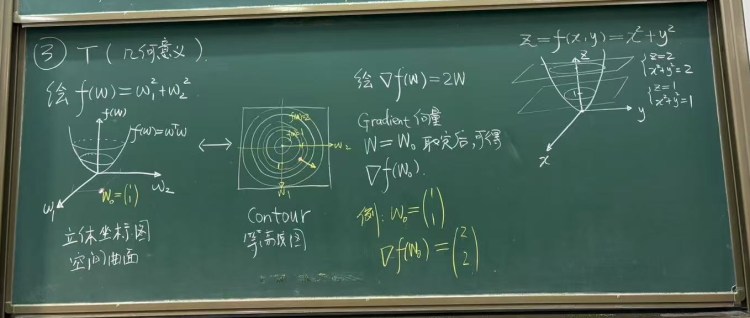 ③ T (几何意义).
绘 f(W)=ω₁²+ω₂²
f(W)
f(W)=WᵀW
ω₂
ω₁
W₀=(1 1)
立体坐标图
空间曲面
f(W)=2
f(W)=1
ω₂
ω₁
Contour
等高线图
绘 ∇f(W)=2W
Gradient 向量
W=W₀ 取定后,可得
∇f(W₀).
例: W₀=(1 1)
∇f(W₀)=(2 2)
z=f(x,y)=x²+y²
z
y
x
{z=2
x²+y²=2
{z=1
x²+y²=1